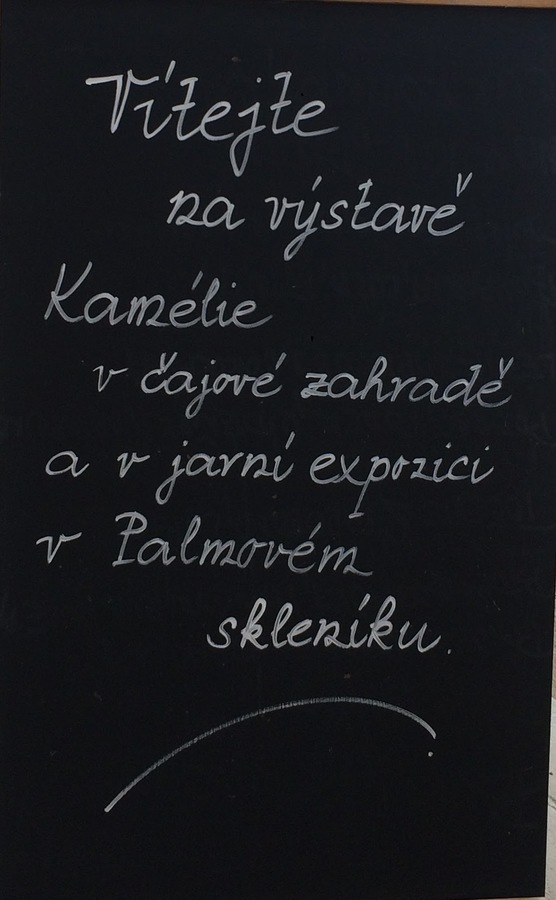 Vítejte
na výstavě
Kamélie
v čajové zahradě
a v jarní expozici
v Palmovém
skleníku.